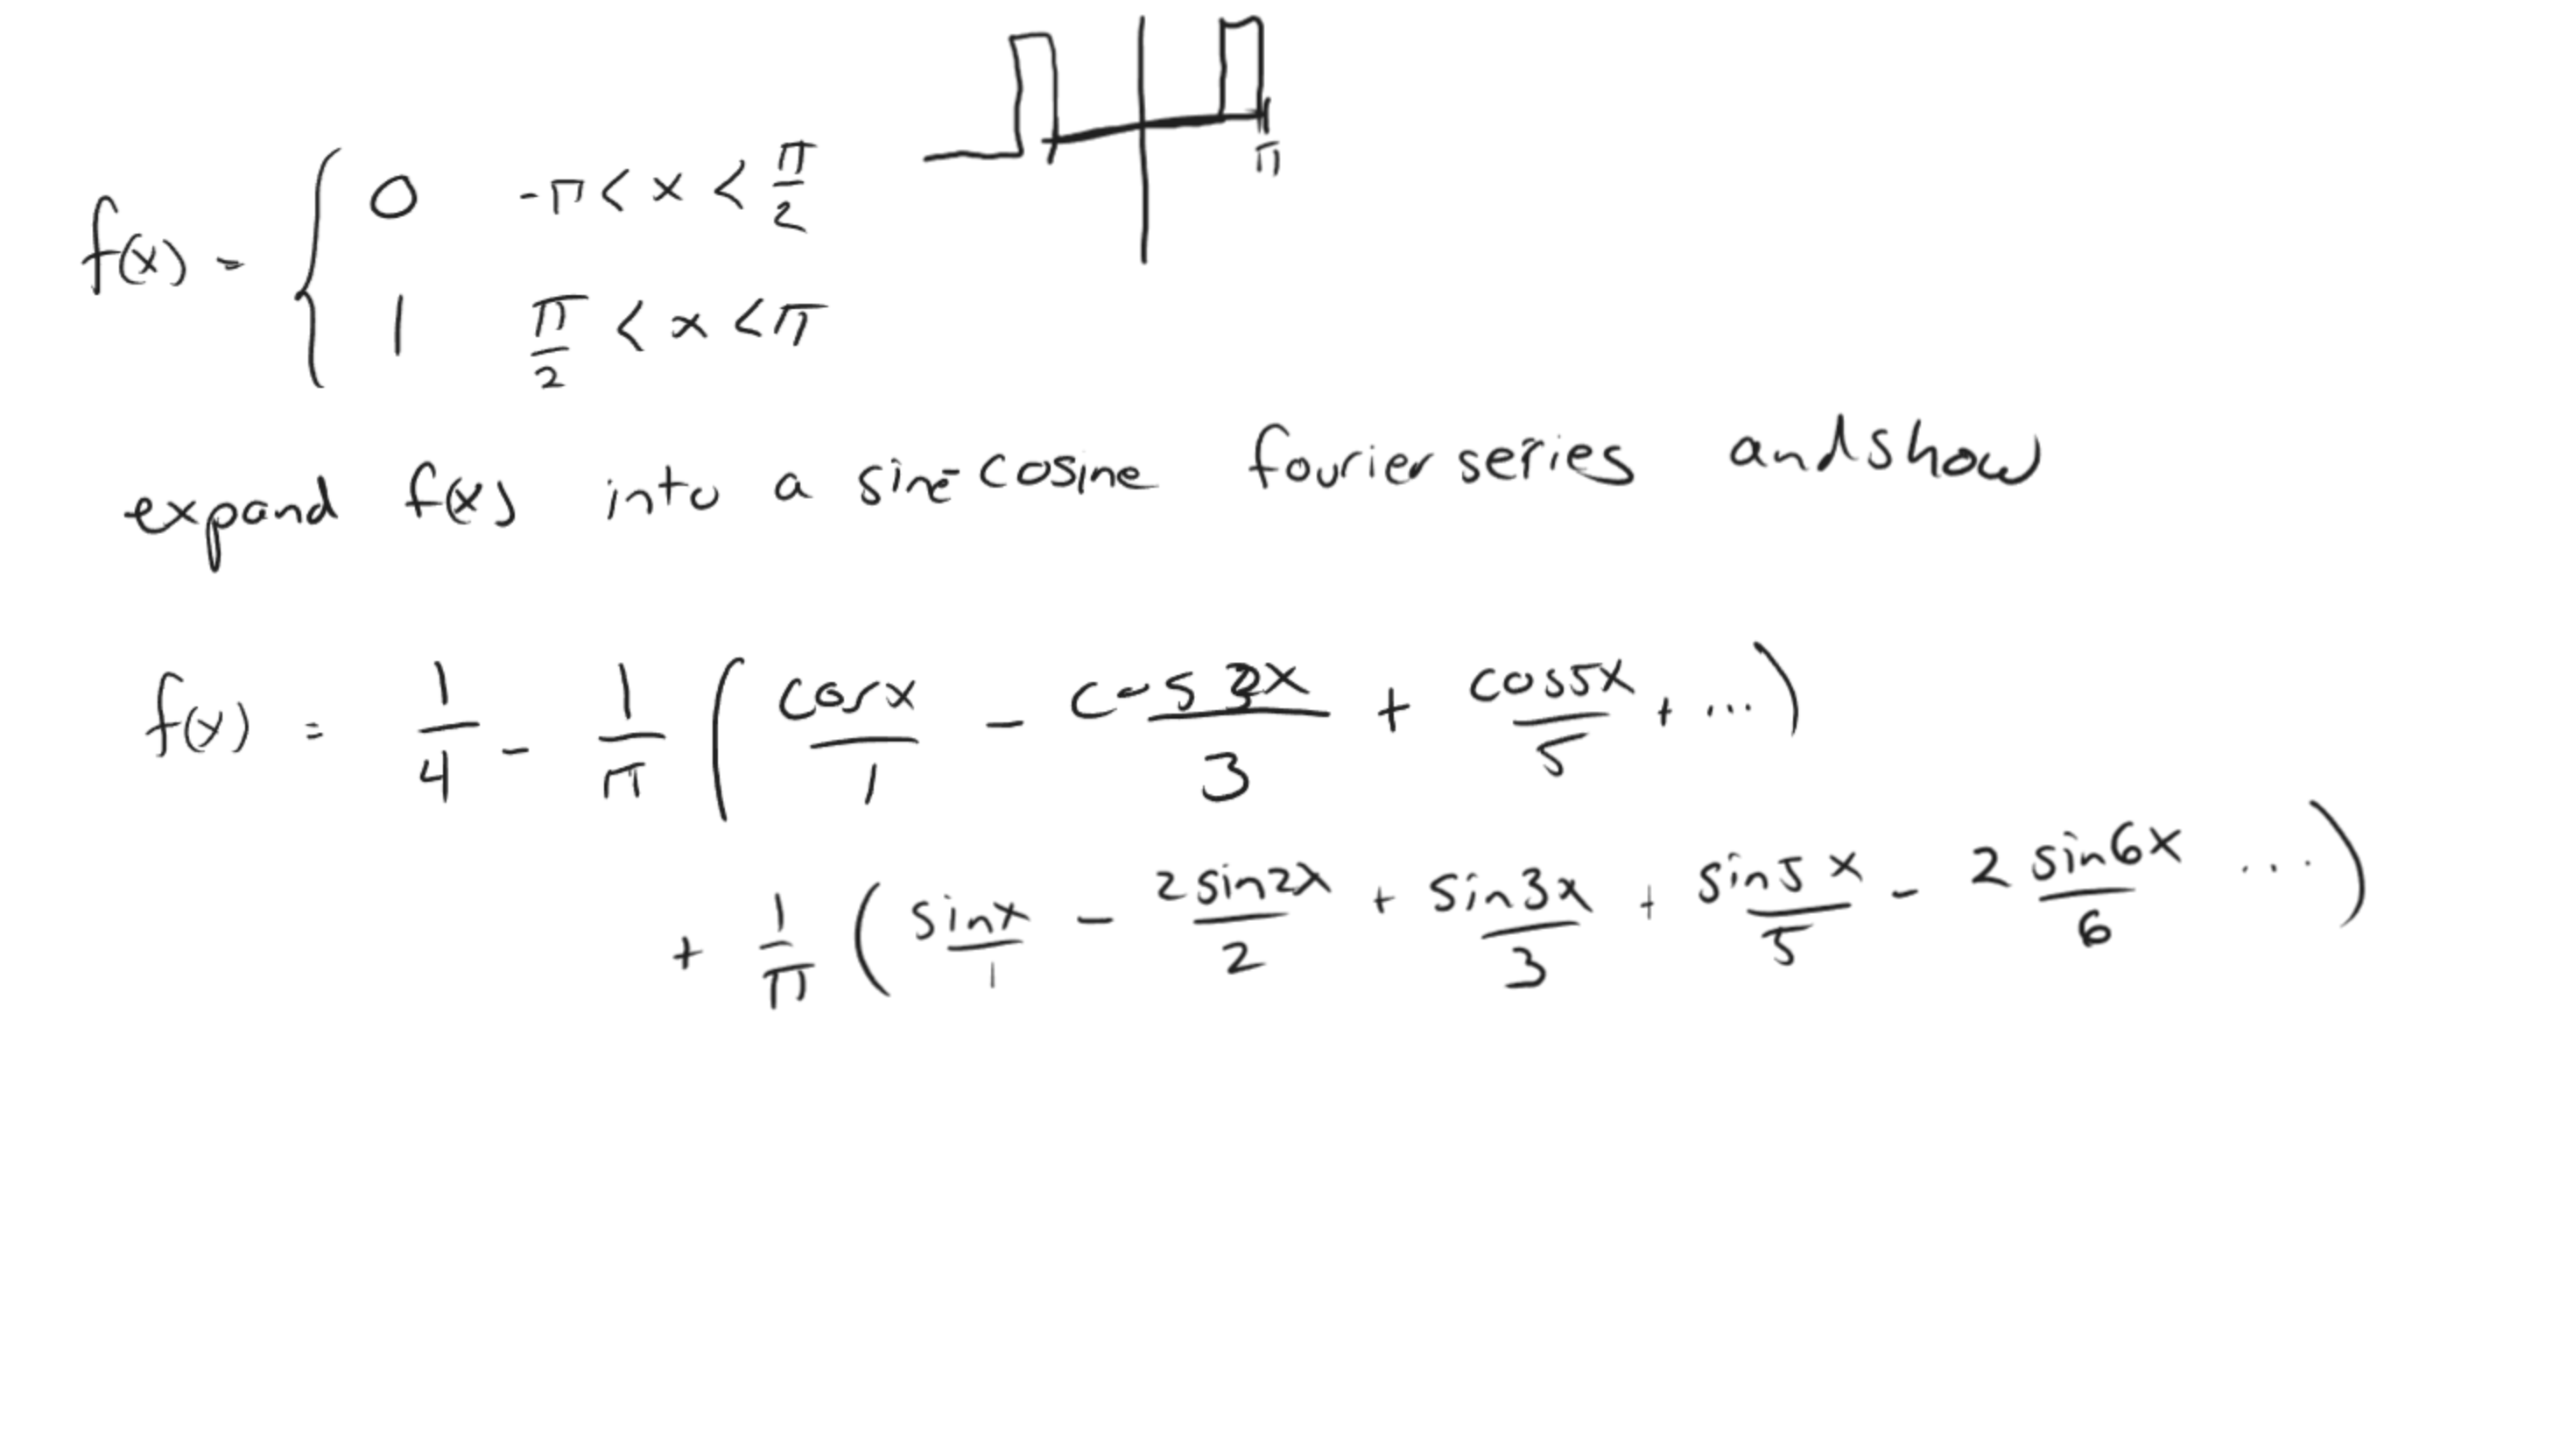 π
f(x) = { 0   -π < x < π/2
1   π/2 < x < π
expand f(x) into a sine-cosine fourier series and show
f(x) = 1/4 - 1/π ( cosx/1 - cos3x/3 + cos5x/5 + ... )
+ 1/π ( sinx/1 - 2sin2x/2 + sin3x/3 + sin5x/5 - 2sin6x/6 ... )